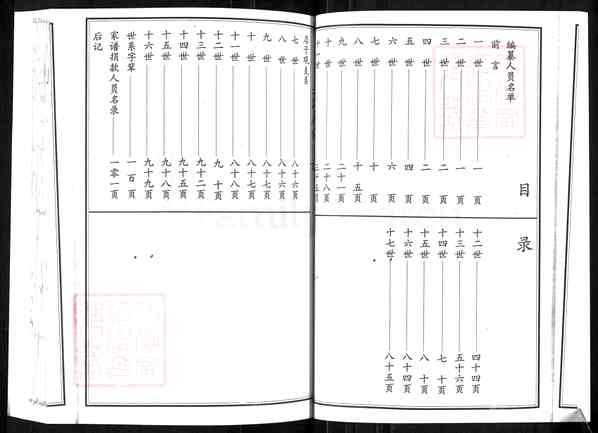 目录
编纂人员名单
前言
一世 一页
二世 一页
三世 二页
四世 二页
五世 四页
六世 六页
七世 十页
八世 十五页
九世 二十一页
十世 二十八页
十一世 三十五页
十二世 四十四页
十三世 五十六页
十四世 七十页
十五世 八十页
十六世 八十四页
十七世 八十五页
七世 八十六页
八世 八十六页
九世 八十七页
十世 八十七页
十一世 八十八页
十二世 九十页
十三世 九十二页
十四世 九十五页
十五世 九十八页
十六世 九十九页
世系字辈 一百页
家谱捐款人员名录 一零一页
后记